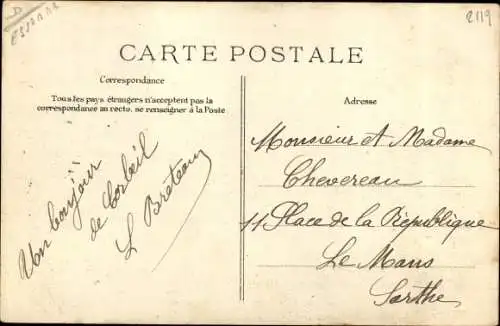 CARTE POSTALE
2119
Correspondance
Tous les pays étrangers n'acceptent pas la
correspondance au recto. se renseigner à la Poste
Adresse
Un bonjour
de Corbeil
L Breteau
Monsieur et Madame
Chevereau
11 Place de la République
Le Mans
Sarthe